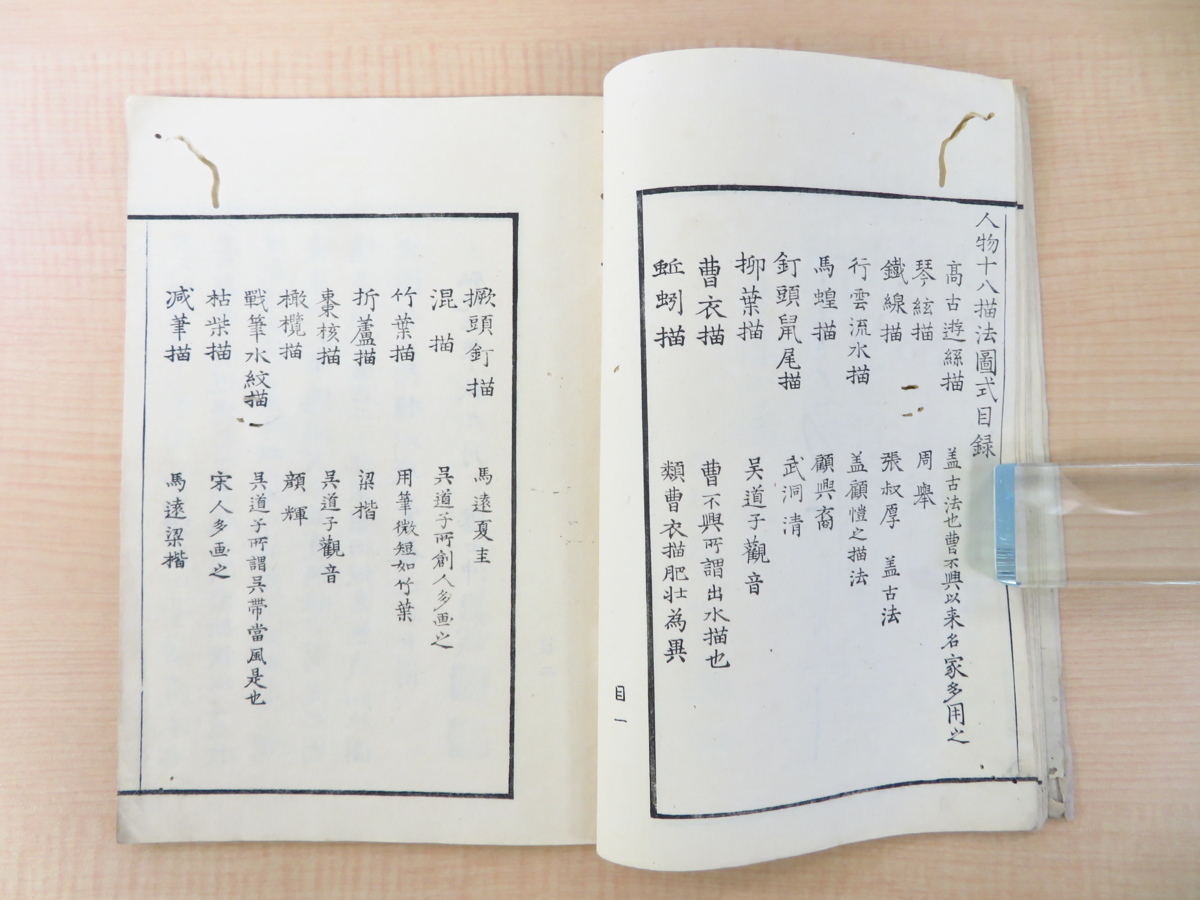 人物十八描法圖式目録
高古遊絲描　盖古法也曹不興以来名家多用之
琴絃描　周舉
鐵線描　張叔厚　盖古法
行雲流水描　盖顧愷之描法
馬蝗描　顧興裔
釘頭鼠尾描　武洞清
柳葉描　吴道子觀音
曹衣描　曹不興所謂出水描也
蚯蚓描　類曹衣描肥壯為異
目一
撅頭釘描　馬遠夏圭
混描　呉道子所創人多画之
竹葉描　用筆微短如竹葉
折蘆描　梁楷
棗核描　呉道子觀音
橄欖描　顔輝
戰筆水紋描　呉道子所謂呉帶當風是也
枯柴描　宋人多画之
减筆描　馬遠梁楷